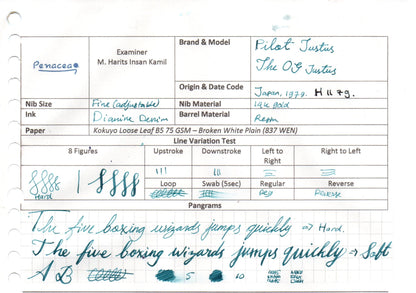 Penacea
Examiner
M. Harits Insan Kamil
Brand & Model
Pilot Justus
The OG Justus
Origin & Date Code
Japan, 1979. H 11 79.
Nib Size
Fine (adjustable)
Nib Material
14k Gold
Ink
Diamine Denim
Barrel Material
Resin
Paper
Kokuyo Loose Leaf B5 75 GSM – Broken White Plain (837 WEN)
Line Variation Test
8 Figures
Upstroke
Downstroke
Left to Right
Right to Left
Loop
Swab (5sec)
Regular
Reverse
Hard
Reg
Reverse
Pangrams
The five boxing wizards jumps quickly → Hard.
The five boxing wizards jumps quickly → Soft
A B
5
10